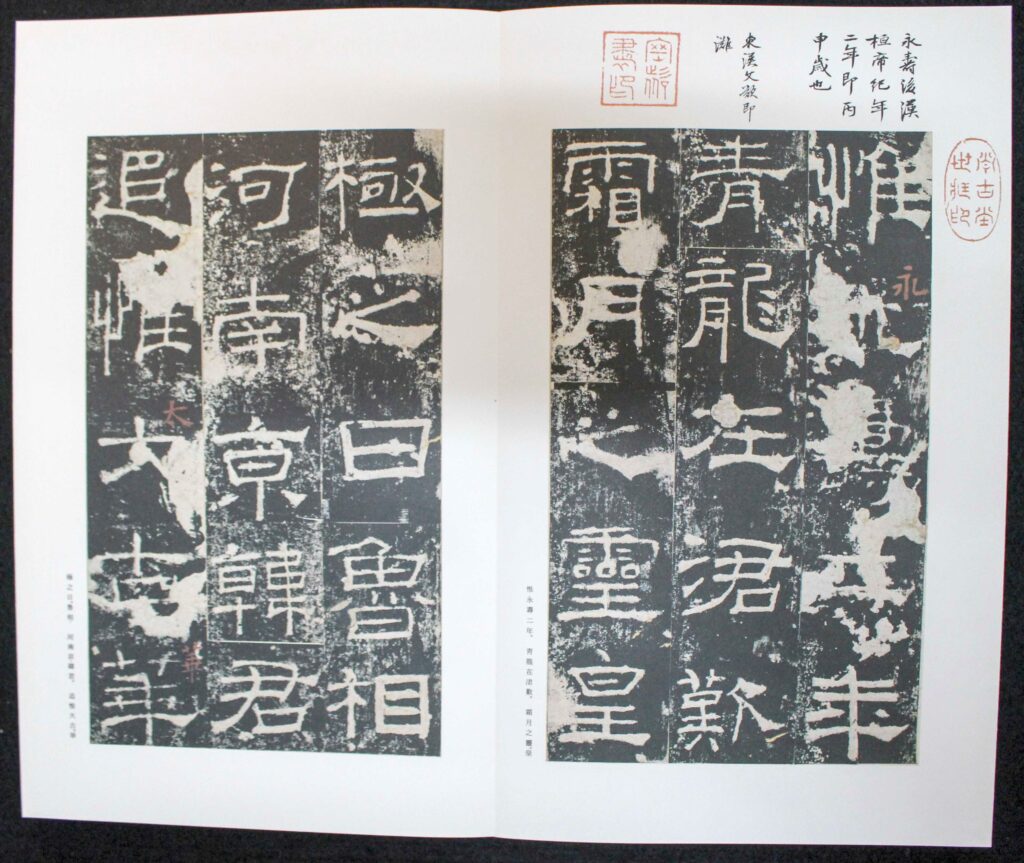 永壽後漢
桓帝紀年
二年即丙
申歲也
東漢文歎即
灘
惟永壽二年
永
青龍在涒歎
霜月之靈皇
惟永壽二年，青龍在涒歎，霜月之靈皇
極之日魯相
河南京韓君
追惟大古華
太
華
極之日，魯相，河南京韓君，追惟大古華